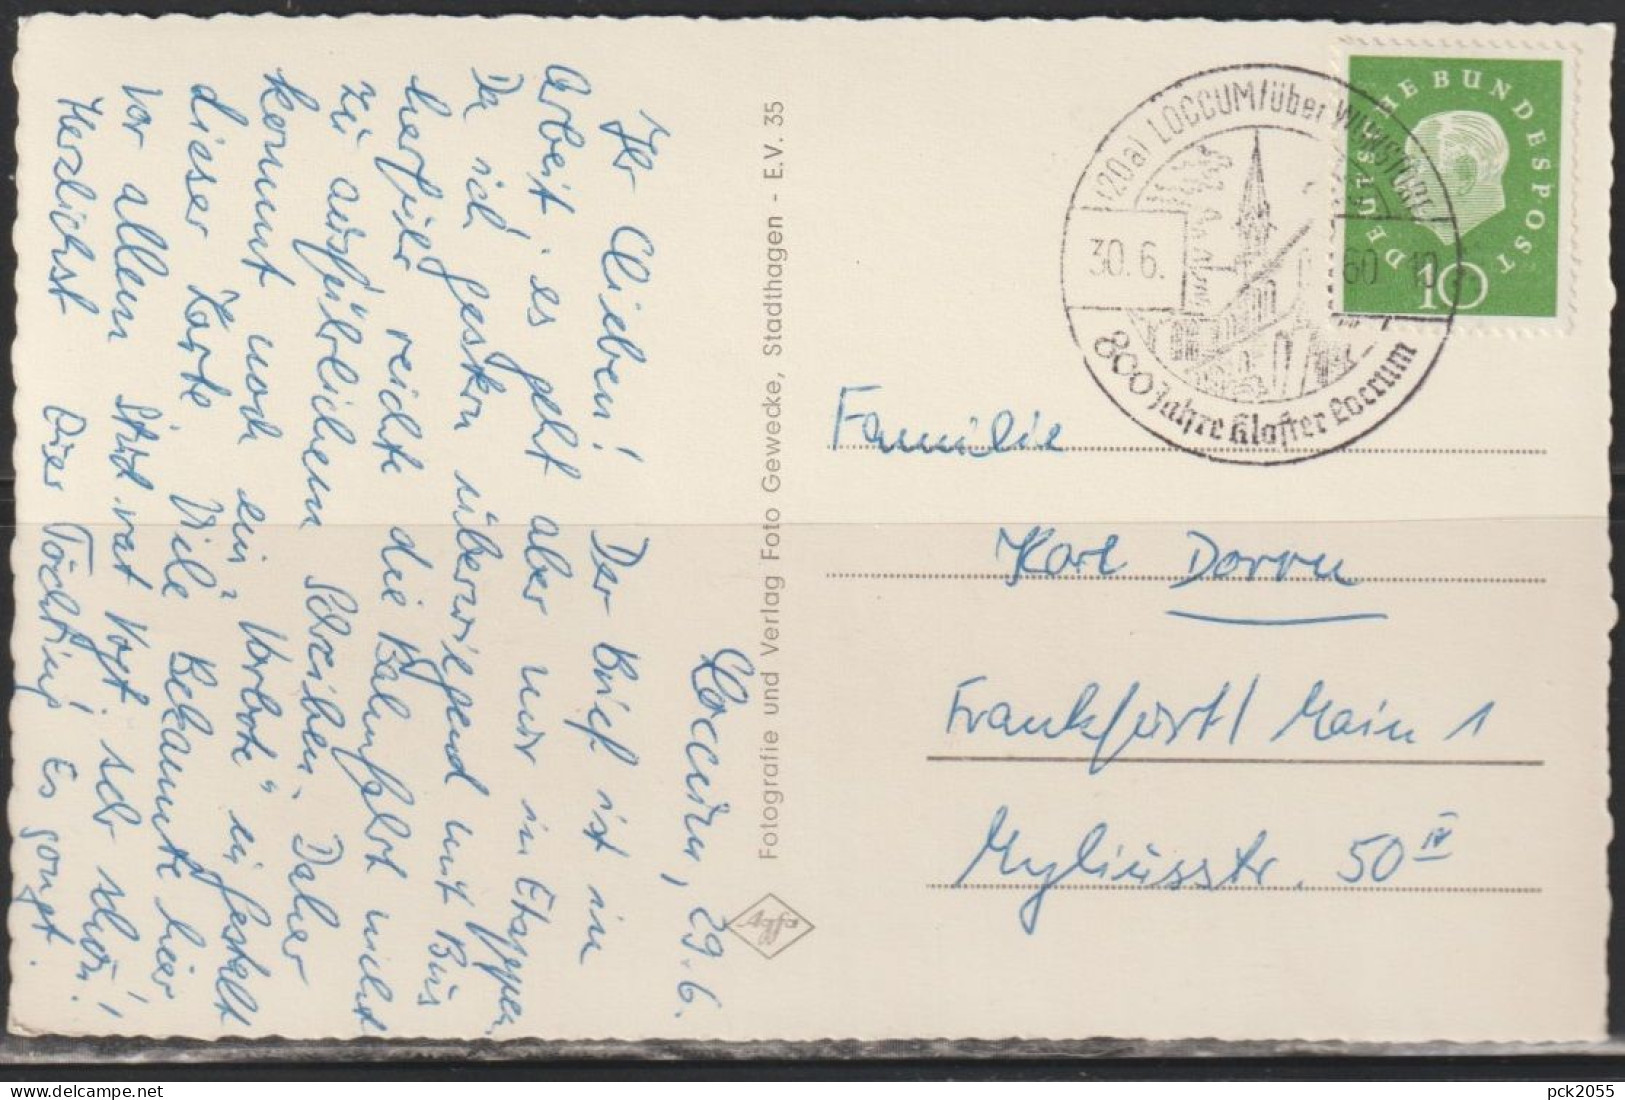 Loccum, 29.6.
Ihr Lieben! Der Brief ist in
Arbeit, es geht aber nur in Etappen.
Da ich gestern überwiegend mit Bus
herfuhr reichte die Bahnfahrt nicht
zu ausführlichem Schreiben. Daher
kommt noch ein "Vorbote" in Gestalt
dieser Karte. Viele Bekannte hier
vor allem Stud.rat Vogt, sehr schön!
Herzlichst Euer Es gongt.
Fotografie und Verlag Foto Gewecke, Stadthagen - E.V. 35
Agfa
(20a) LOCCUM/über WUNSTORF
30.6. 60 - 10
800 Jahre Kloster Loccum
DEUTSCHE BUNDESPOST
10
Familie
Karl Dorru
Frankfurt/Main 1
Myliusstr. 50 IV
pck2055